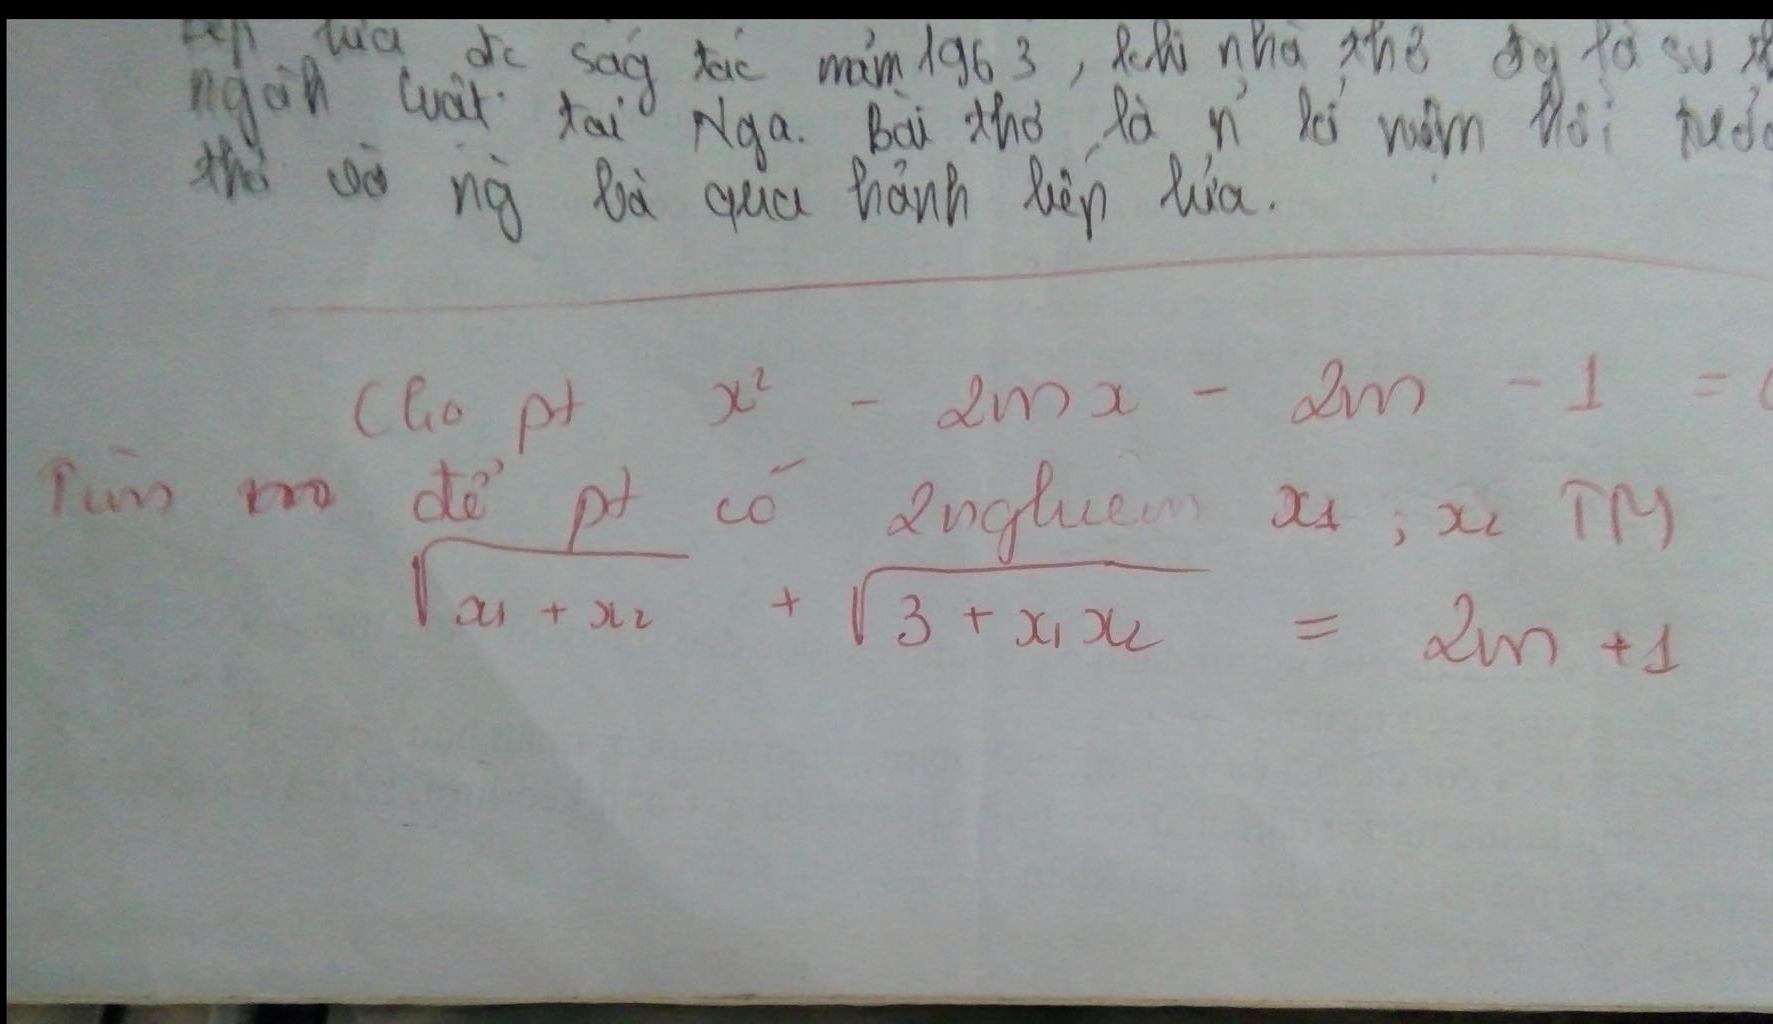 lửa đc ság tác năm 1963, khi nhà thơ đg là su
ngàh luật tại Nga. Bài thơ là n' kỉ niệm hồi tưở
thơ về ng bà qua hảnh bếp lửa.
Cho pt x² - 2mx - 2m - 1 =
Tìm m để pt có 2 nghiệm x₁ ; x₂ TM
√x₁ + x₂ + √3 + x₁x₂ = 2m + 1